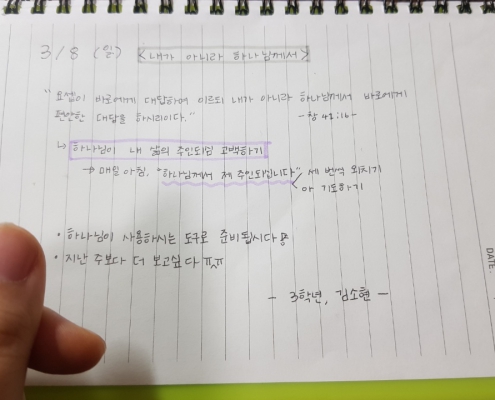 3/8 (일) <내가 아니라 하나님께서>
"요셉이 바로에게 대답하여 이르되 내가 아니라 하나님께서 바로에게
편안한 대답을 하시리이다." -창 41:16-
↳ 하나님이 내 삶의 주인되심 고백하기
→ 매일 아침. "하나님께서 제 주인되십니다" 세 번씩 외치기
아 기도하기
· 하나님이 사용하시는 도구로 준비됩시다
· 지난 주보다 더 보고싶다 ㅠㅅㅠ
- 3학년, 김소현 -
DATE.